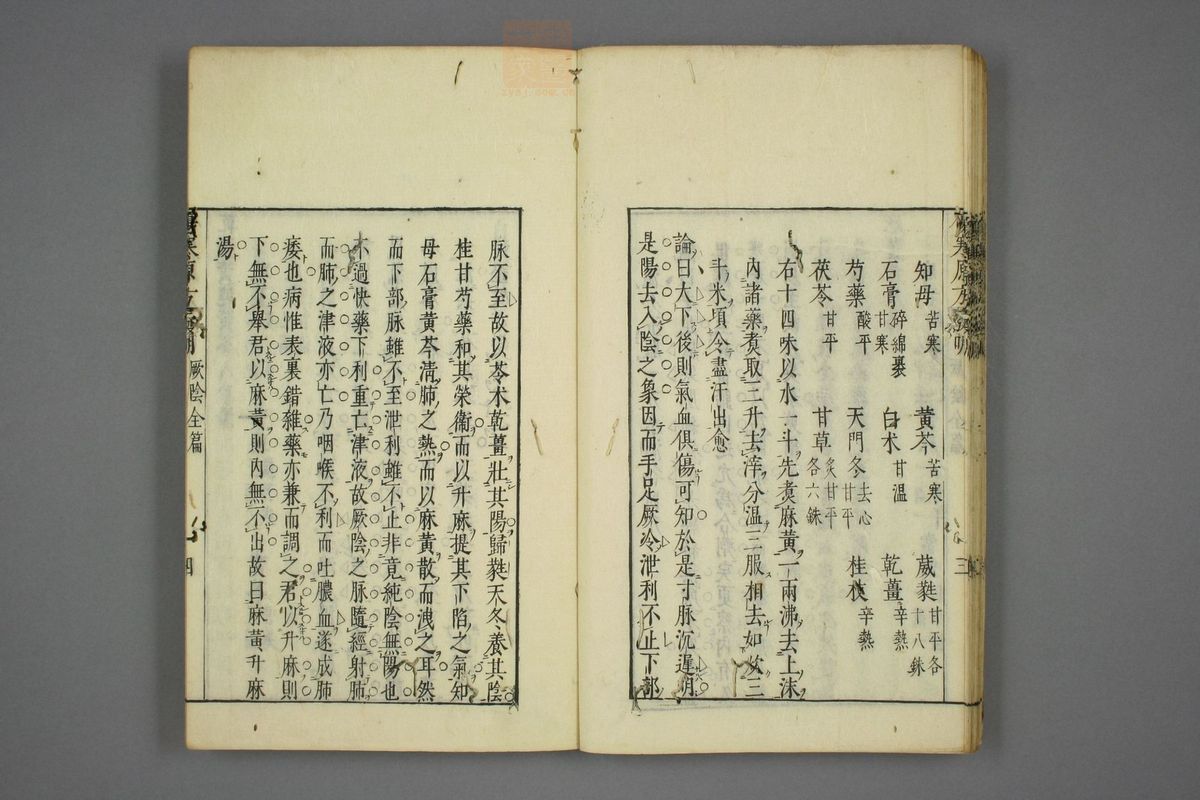 知母苦寒 黄芩苦寒 葳蕤甘平各十八銖
石膏碎綿裹甘寒 白术甘溫 乾薑辛熱
芍藥酸平 天門冬去心甘平 桂枝辛熱
茯苓甘平 甘草炙甘平各六銖
右十四味以水一斗先煑麻黄一兩沸去上沫
內諸藥煑取三升去滓分溫三服相去如炊三
斗米頃令盡汗出愈
論曰大下後則氣血俱傷可知於是寸脉沉遲明
是陽去入陰之象因而手足厥冷泄利不止下部
三
脉不至故以苓术乾薑壯其陽歸蕤天冬養其陰
桂甘芍藥和其榮衞而以升麻提其下陷之氣知
母石膏黄芩淸肺之熱而以麻黄散而洩之耳然
而下部脉雖不至泄利雖不止非竟純陰無陽也
不過快藥下利重亡津液故厥陰之脉隨經射肺
而肺之津液亦亡乃咽喉不利而吐膿血遂成肺
痿也病惟表裏錯雜藥亦兼而調之君以升麻則
下無不舉君以麻黄則內無不出故曰麻黄升麻
湯
厥陰全篇
四